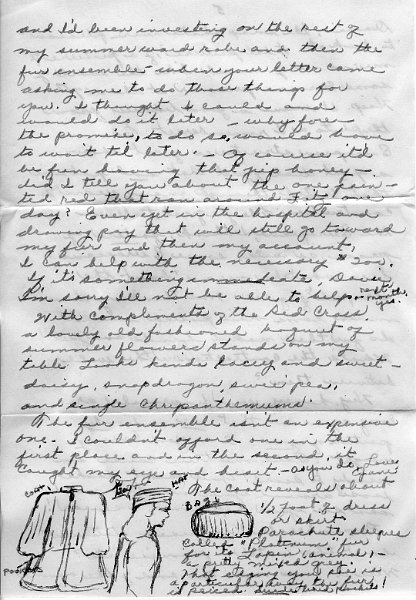 and I'd been investing on the rest of
my summer ward robe and then the
fur ensemble - when your letter came
asking me to do those things for
you. I thought I could and
would do it later - why fore
the promise, to do so, would have
to wait til later. - Of course it'd
be fun having that jeep honey -
did I tell you about the one pain-
ted red that ran around Ft. one
day? Even yet in the hospital and
drawing pay that will still go toward
my fur and then my account,
I can help with the necessary $200.
If it's something immediate, Dear
I'm sorry I'll not be able to help next month
With compliments of the Red Cross
a lovely old fashioned boquet of
summer flowers stands on my
table. Looks kinda lacey and sweet -
daisy, snapdragon, swee pea,
and single Chrysanthimums.
The fur ensemble isn't an expensive
one - I couldn't afford one in the
first place and in the second, it
caught my eye and heart - as you do, Love
The coat reveals about
COAT
HAT
BAG
1/2 foot of dress
or skirt
Parachute sleeves
called "Platinum" fur
for its Lapin (animal) -
a pretty mixed grey.
POCKET
is pieced